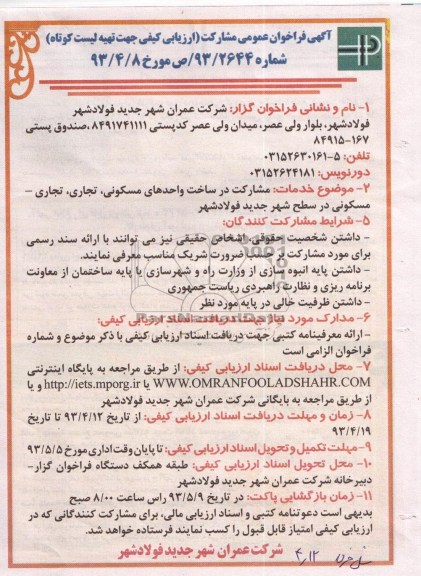 آگهی فراخوان عمومی مشارکت (ارزیابی کیفی جهت تهیه لیست کوتاه)
شماره ۹۳/۲۶۴۴/ص مورخ ۹۳/۴/۸
۱- نام و نشانی فراخوان گزار: شرکت عمران شهر جدید فولادشهر
فولادشهر، بلوار ولی عصر، میدان ولی عصر کدپستی ۸۴۹۱۷۴۱۱۱۱، صندوق پستی
۸۴۹۱۵-۱۶۷
تلفن: ۵-۰۳۱۵۲۶۳۰۱۶۱
دورنویس: ۰۳۱۵۲۶۲۴۱۸۱
۲- موضوع خدمات: مشارکت در ساخت واحدهای مسکونی، تجاری، تجاری –
مسکونی در سطح شهر جدید فولادشهر
۵- شرایط مشارکت کنندگان:
- داشتن شخصیت حقوقی، اشخاص حقیقی نیز می توانند با ارائه سند رسمی
برای مورد مشارکت بر حسب ضرورت شریک مناسب معرفی نمایند.
- داشتن پایه انبوه سازی از وزارت راه و شهرسازی یا پایه ساختمان از معاونت
برنامه ریزی و نظارت راهبردی ریاست جمهوری
- داشتن ظرفیت خالی در پایه مورد نظر
۶- مدارک مورد نیاز جهت دریافت اسناد ارزیابی کیفی:
- ارائه معرفینامه کتبی جهت دریافت اسناد ارزیابی کیفی با ذکر موضوع و شماره
فراخوان الزامی است
۷- محل دریافت اسناد ارزیابی کیفی: از طریق مراجعه به پایگاه اینترنتی
WWW.OMRANFOOLADSHAHR.COM یا http://iets.mporg.ir و یا
از طریق مراجعه به بایگانی شرکت عمران شهر جدید فولادشهر
۸- زمان و مهلت دریافت اسناد ارزیابی کیفی: از تاریخ ۹۳/۴/۱۲ تا تاریخ
۹۳/۴/۱۹
۹- مهلت تکمیل و تحویل اسناد ارزیابی کیفی: تا پایان وقت اداری مورخ ۹۳/۵/۵
۱۰- محل تحویل اسناد ارزیابی کیفی: طبقه همکف دستگاه فراخوان گزار-
دبیرخانه شرکت عمران شهر جدید فولادشهر
۱۱- زمان بازگشایی پاکت: در تاریخ ۹۳/۵/۹ راس ساعت ۸/۰۰ صبح
بدیهی است دعوتنامه کتبی و اسناد ارزیابی مالی، برای مشارکت کنندگانی که در
ارزیابی کیفی امتیاز قابل قبول را کسب نمایند فرستاده خواهد شد.
شرکت عمران شهر جدید فولادشهر
۴/۱۲